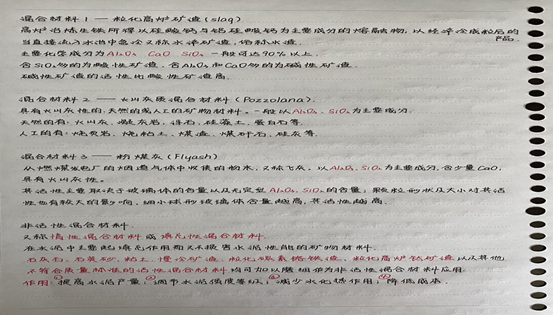 混合材料1——粒化高炉矿渣(slag)
高炉冶炼生铁所得以硅酸钙与铝硅酸钙为主要成分的熔融物,以经淬冷成粒后的产品。
当直接流入水池中急冷又称水淬矿渣,俗称水渣。
主要化学成分为Al₂O₃ CaO SiO₂ 一般可达90%以上。
含SiO₂多的为酸性矿渣,含Al₂O₃和CaO多的为碱性矿渣。
碱性矿渣的活性比酸性矿渣高。
混合材料2——火山灰质混合材料(Pozzolana)
具有火山灰性的天然的或人工的矿物材料。一般以Al₂O₃、SiO₂为主要成分。
天然的有:火山灰、凝灰岩、浮石、硅藻土、蛋白石等
人工的有:烧页岩、烧粘土、煤渣、煤矸石、硅灰等
混合材料3——粉煤灰(Flyash)
从燃煤发电厂的烟道气体中收集的粉末,又称飞灰。以Al₂O₃、SiO₂为主要成分,含少量CaO,
具有火山灰性。
其活性主要取决于玻璃体的含量以及无定型Al₂O₃、SiO₂的含量,颗粒形状及大小对其活
性也有较大的影响,细小球形玻璃体含量越高,其活性越高。
非活性混合材料
又称惰性混合材料或填充性混合材料
在水泥中主要起填充作用而又不损害水泥性能的矿物材料。
石灰石、石英砂、粘土、慢冷矿渣、粒化高炉钛矿渣以及其他
不符合质量标准的活性混合材料均可加以磨细作为非活性混合材料应用
作用:①提高水泥产量;②调节水泥强度等级;③减少水化热作用;④降低成本。